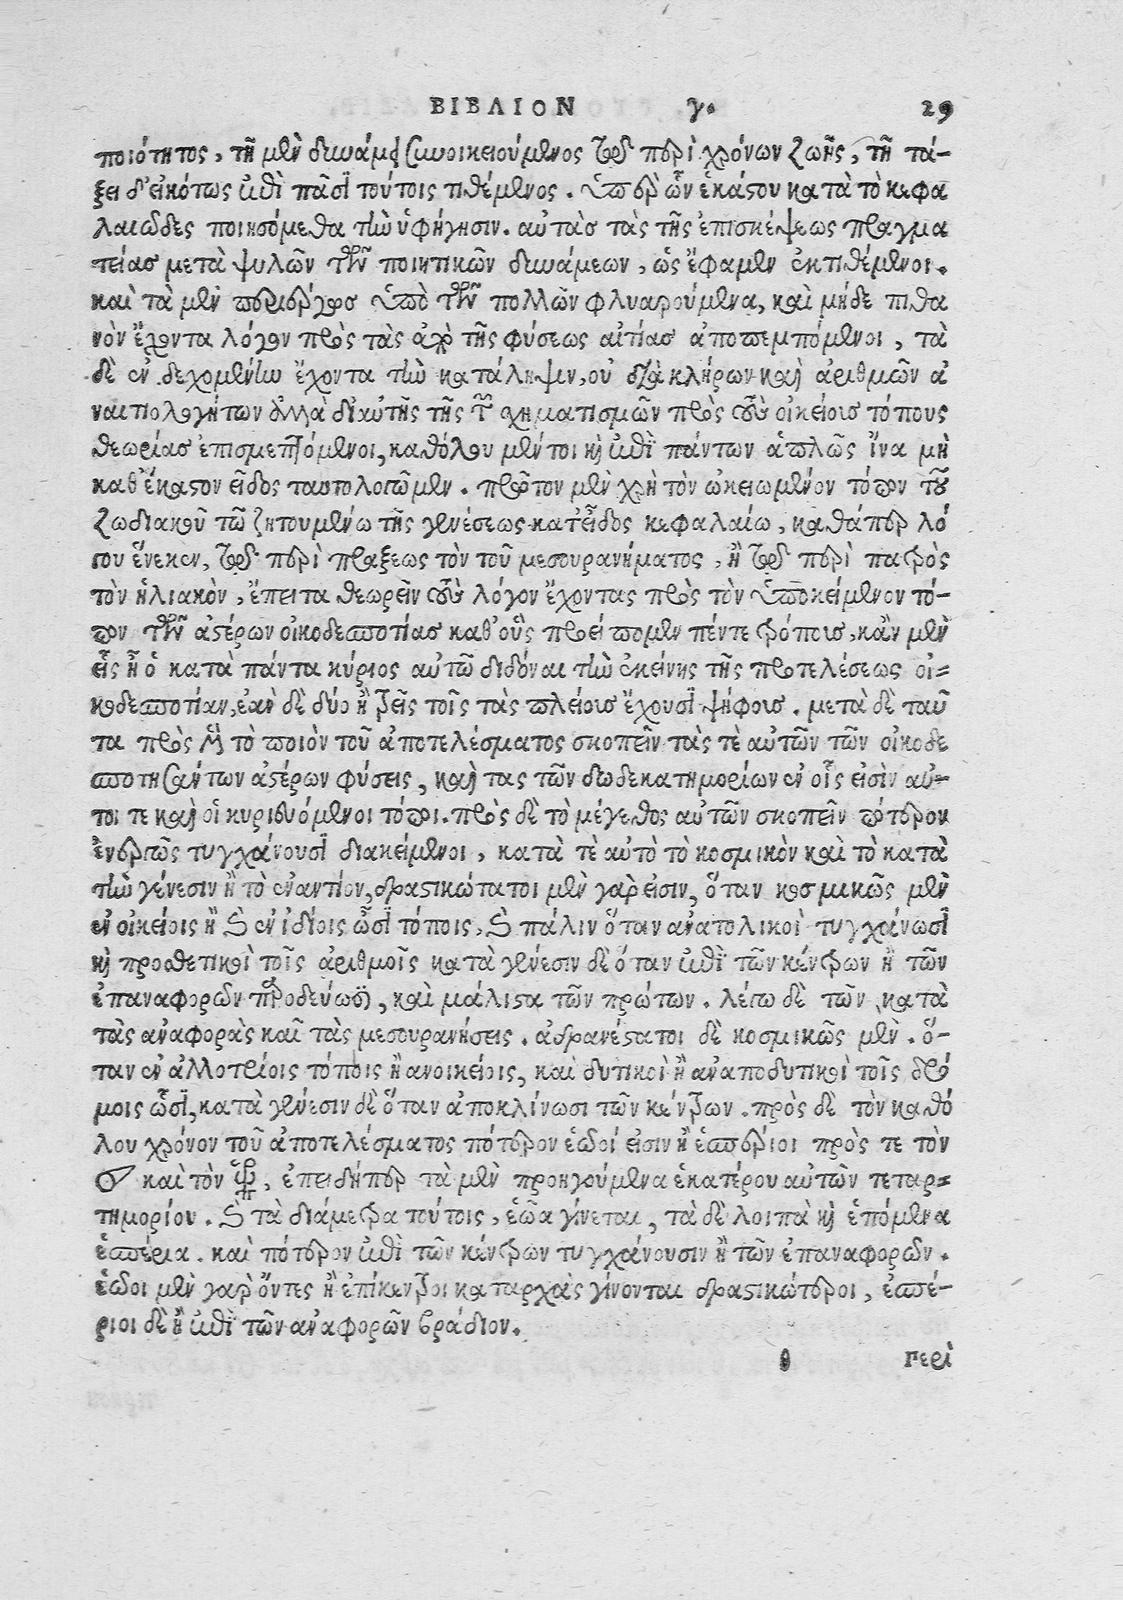 ΒΙΒΛΙΟΝ γ. 29
ποιότητος, τῇ μὲν δυνάμει συνοικειούμενος τῷ περὶ χρόνων ζωῆς, τῇ τά-
ξει δ' εἰκότως ἐπὶ πᾶσι τούτοις τιθέμενος. ὑπὲρ ὧν ἑκάστου κατὰ τὸ κεφα
λαιῶδες ποιησόμεθα τὴν ὑφήγησιν. αὐτὰσ τὰς τῆς ἐπισκέψεως πραγμα
τείασ μετὰ ψυλῶν τῶν ποιητικῶν δυνάμεων, ὡς ἔφαμεν ἐκτιθέμενοι.
καὶ τὰ μὲν περιέργωσ ὑπὸ τῶν πολλῶν φλυαρούμενα, καὶ μήδε πιθα
νὸν ἔχοντα λόγον πρὸς τὰς ἀπὸ τῆς φύσεως αἰτίασ ἀποπεμπόμενοι, τὰ
δὲ ἐνδεχομένην ἔχοντα τὴν κατάληψιν, οὐ διὰ κλήρων καὶ ἀριθμῶν ἀ
ναιτιολογήτων ἀλλὰ δι' αὐτῆς τῆς τῶν χηματισμῶν πρὸς τοὺς οἰκείουσ τόπους
θεωρίασ ἐπισμεπτόμενοι, καθόλου μέντοι καὶ ἐπὶ πάντων ἁπλῶς ἵνα μὴ
καθ' ἕκαστον εἶδος ταυτολογῶμεν. πρῶτον μὲν χρὴ τὸν ὠκειωμένον τόπον τοῦ
ζωδιακοῦ τῶ ζητουμένω τῆς γενέσεως κατ' εἶδος κεφαλαίω, καθάπερ λό
γου ἕνεκεν, τῷ περὶ πράξεως τὸν τοῦ μεσουρανήματος, ἢ τῷ περὶ πατρὸς
τὸν ἡλιακὸν, ἔπειτα θεωρεῖν τοὺς λόγον ἔχοντας πρὸς τὸν ὑποκείμενον τό-
πον τῶν ἀστέρων οἰκοδεσποτίασ καθ' οὓς προείπομεν πέντε τρόπουσ, κἂν μὲν
εἷς ἦ ὁ κατὰ πάντα κύριος αὐτῶ διδόναι τὴν ἐκείνης τῆς προτελέσεως οἰ-
κοδεσποτίαν, ἐὰν δὲ δύο ἢ τρεῖς τοῖς τὰς πλείουσ ἔχουσι ψήφουσ. μετὰ δὲ ταῦ
τα πρὸς μὲν τὸ ποιὸν τοῦ ἀποτελέσματος σκοπεῖν τὰς τὲ αὐτῶν τῶν οἰκοδε
σποτησάντων ἀστέρων φύσεις, καὶ τας τῶν δωδεκατημορίων ἐν οἷς εἰσὶν αὐ-
τοι τε καὶ οἱ κυριευόμενοι τόποι. πρὸς δὲ τὸ μέγεθος αὐτῶν σκοπεῖν πότερον
ἐνεργῶς τυγχάνουσι διακείμενοι, κατὰ τὲ αὐτὸ τὸ κοσμικὸν καὶ τὸ κατὰ
τὴν γένεσιν ἢ τὸ ἐναντίον, δραστικώτατοι μὲν γάρ εἰσιν, ὅταν κοσμικῶς μὲν
ἐν οἰκείοις ἢ καὶ ἐν ἰδίοις ὦσι τόποις, καὶ πάλιν ὅταν ἀνατολικοὶ τυγχάνωσι
καὶ προσθετικοὶ τοῖς ἀριθμοῖς κατὰ γένεσιν δὲ ὅταν ἐπὶ τῶν κέντρων ἢ τῶν
ἐπαναφορῶν παροδεύωσι, καὶ μάλιστα τῶν πρώτων. λέγω δὲ τῶν κατὰ
τὰς ἀναφορὰς καῦ τὰς μεσουρανήσεις. ἀδρανέστατοι δὲ κοσμικῶς μὲν. ὅ-
ταν ἐν ἀλλοτρίοις τόποις ἢ ανοικείοις, καὶ δυτικοὶ ἢ ἀναποδυτικοὶ τοῖς δρό
μοις ὦσι, κατὰ γένεσιν δὲ ὅταν ἀποκλίνωσι τῶν κέντρων. πρὸς δὲ τὸν καθό
λου χρόνον τοῦ ἀποτελέσματος πότερον ἑῶοί εἰσιν ἢ ἑσπέριοι πρὸς τε τὸν
☉ καὶ τὸν , ἐπειδήπερ τὰ μὲν προηγούμενα ἑκατέρου αὐτῶν τεταρ-
τημορίου. καὶ τὰ διάμετρα τούτοις, ἑῶα γίνεται, τὰ δὲ λοιπὰ καὶ ἑπόμενα
ἑσπέρια. καὶ πότερον ἐπὶ τῶν κέντρων τυγχάνουσιν ἢ τῶν ἐπαναφορῶν.
ἑῶοι μὲν γαρ ὄντες ἢ ἐπίκεντροι καταρχὰς γίνονται δραστικώτεροι, ἑσπέ-
ριοι δὲ ἢ ἐπὶ τῶν ἀναφορῶν βράδιον.
θ περὶ